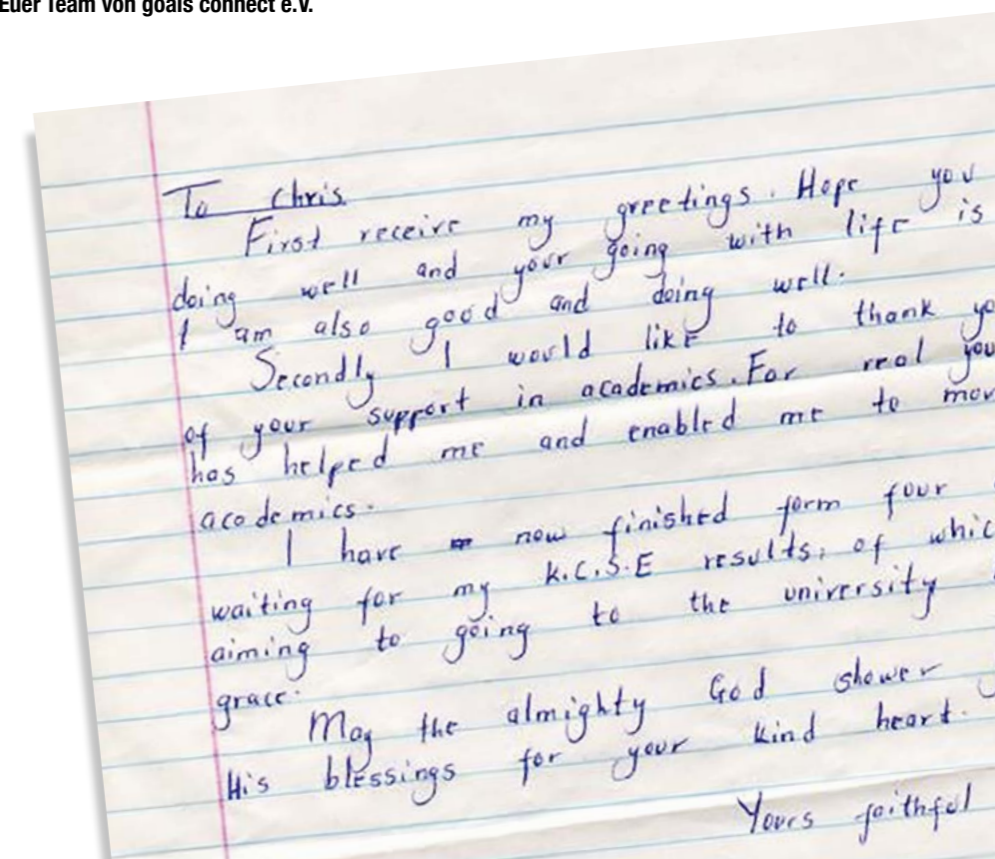 Euer Team von goals connect e.V.
To Chris
First receive my greetings. Hope you
doing well and your going with life is
I am also good and doing well.
Secondly I would like to thank
of your support in academics. For real
has helped me and enabled me to
academics.
I have now finished form four
waiting for my K.C.S.E results, of
aiming to going to the university
grace.
May the almighty God shower
His blessings for your kind heart.
Yours faithful